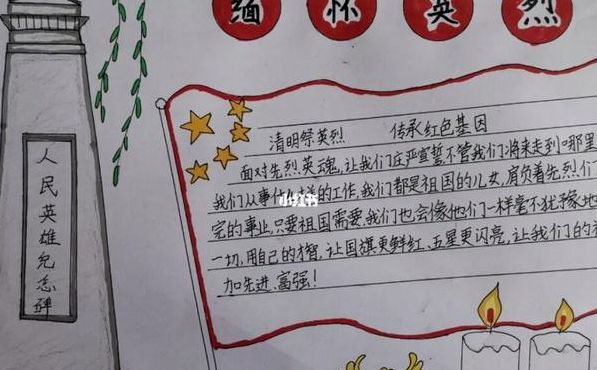 缅怀英烈
人民英雄纪念碑
清明祭英烈 传承红色基因
面对先烈英魂,让我们庄严宣誓不管我们将来走到哪里
我们从事什么样的工作,我们都是祖国的儿女,肩负着先烈们
完的事业,只要祖国需要,我们也会像他们一样毫不犹豫地
一切,用自己的才智,让国旗更鲜红、五星更闪亮,让我们的
加先进、富强!
小红书